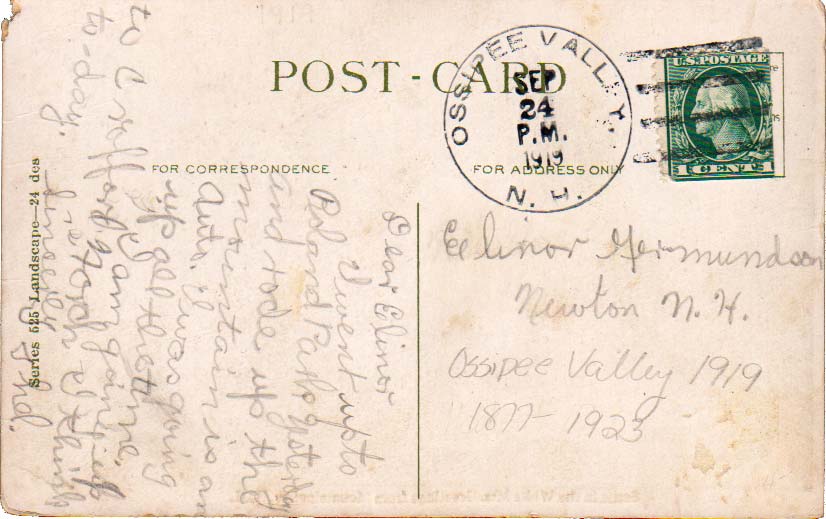 POST-CARD
OSSIPEE VALLEY,
SEP
24
P.M.
1919
N. H.
U.S. POSTAGE
1 CENT 1
FOR CORRESPONDENCE
FOR ADDRESS ONLY
Series 525 Landscape—24 des
Dear Elinor
I went up to
yesterday
and rode up the
mountain is an
auto. I was going
up get that time.
I am going up
to Crafford
to-day.
I think
Sincerely
Elinor
Newton N. H.
Ossipee Valley 1919
1877-1923